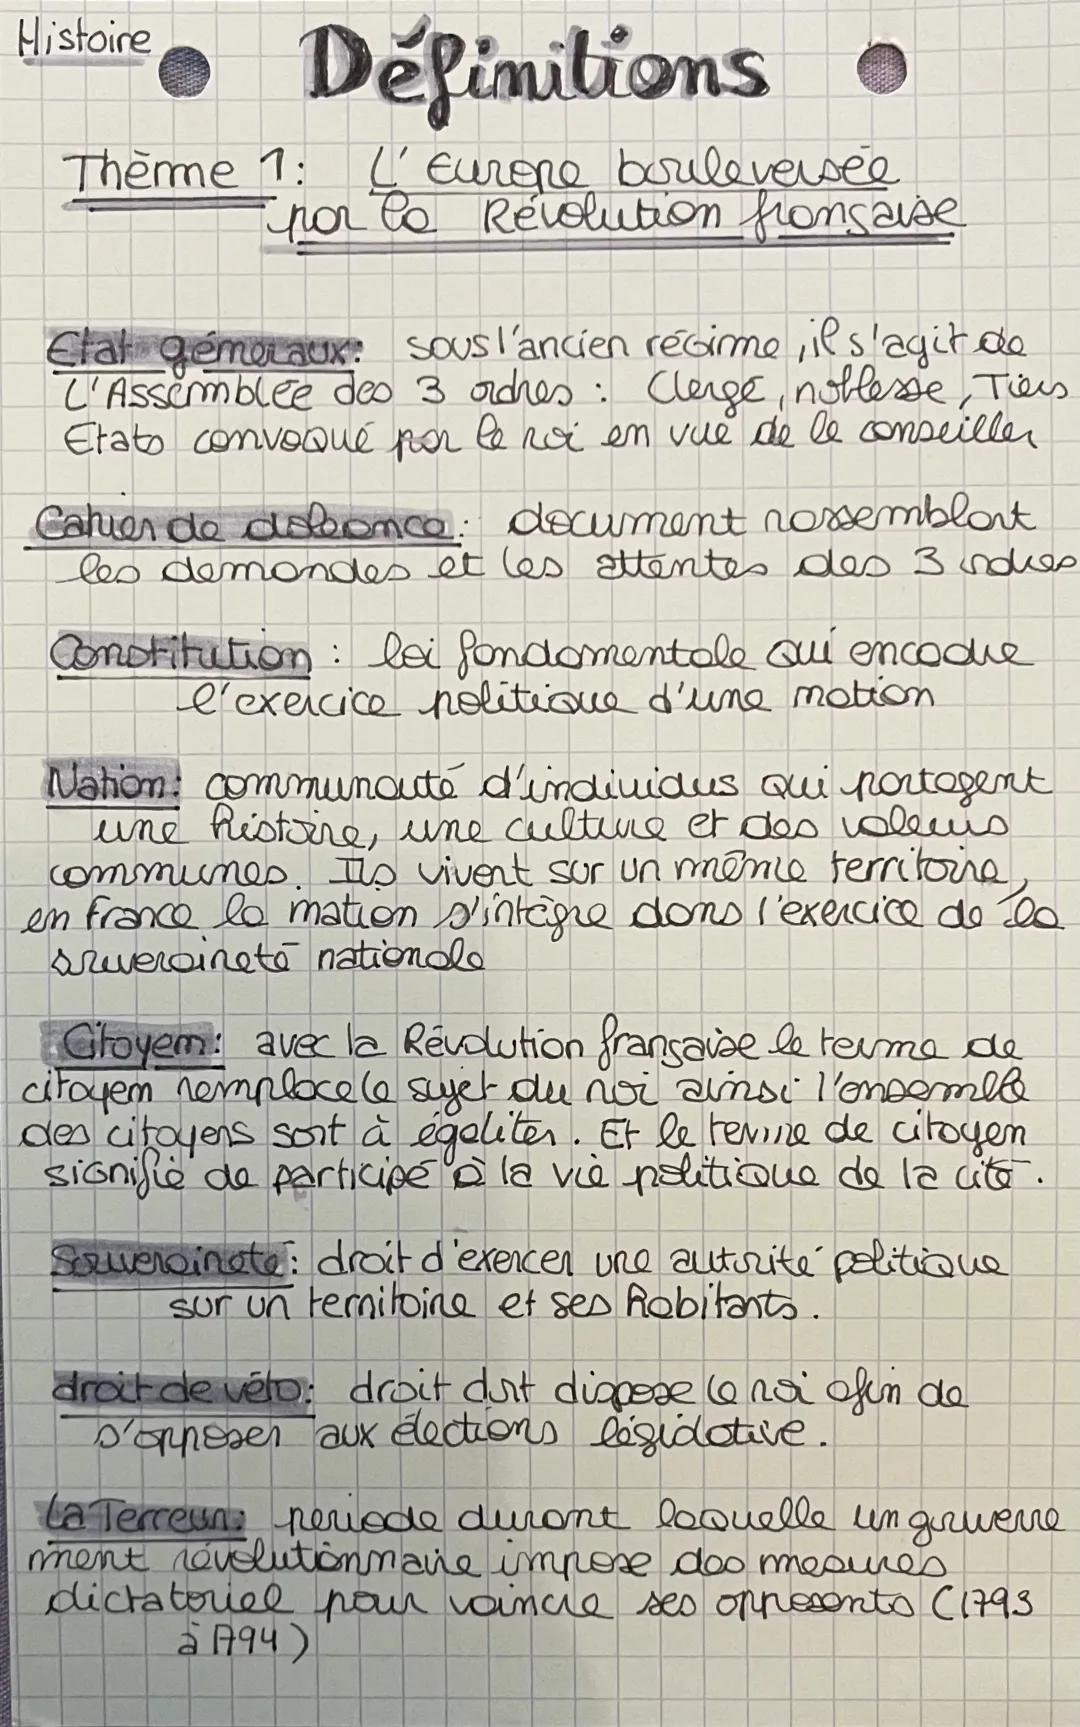 Histoire
Définitions
Thème 1: L'Europe bouleversée
par la Révolution française
Etat généraux: sous l'ancien régime, il s'agit de
L'Assemblée des 3 ordres : Clergé, noblesse, Tiers
Etats convoqué par le roi en vue de le conseiller
Cahier de doléance: document rassemblant
les demandes et les attentes des 3 ordres
Constitution : loi fondamentale qui encadre
l'exercice politique d'une nation
Nation: communauté d'individus qui partagent
une histoire, une culture et des valeurs
communes. Ils vivent sur un même territoire,
en france la nation s'intègre dans l'exercice de la
souveraineté nationale
Citoyen: avec la Révolution française le terme de
citoyen remplace le sujet du roi ainsi l'ensemble
des citoyens sont à égaliter. Et le terme de citoyen
signifie de participé à la vie politique de la cité.
Souveraineté: droit d'exercer une autorité politique
sur un territoire et ses habitants.
droit de véto: droit dont dispose le roi afin de
s'opposer aux élections législative.
La Terreur: periode durant laquelle un gouverne
ment révolutionnaire impose des mesures
dictatoriel pour vaincre ses opposants (1793
à 1794)